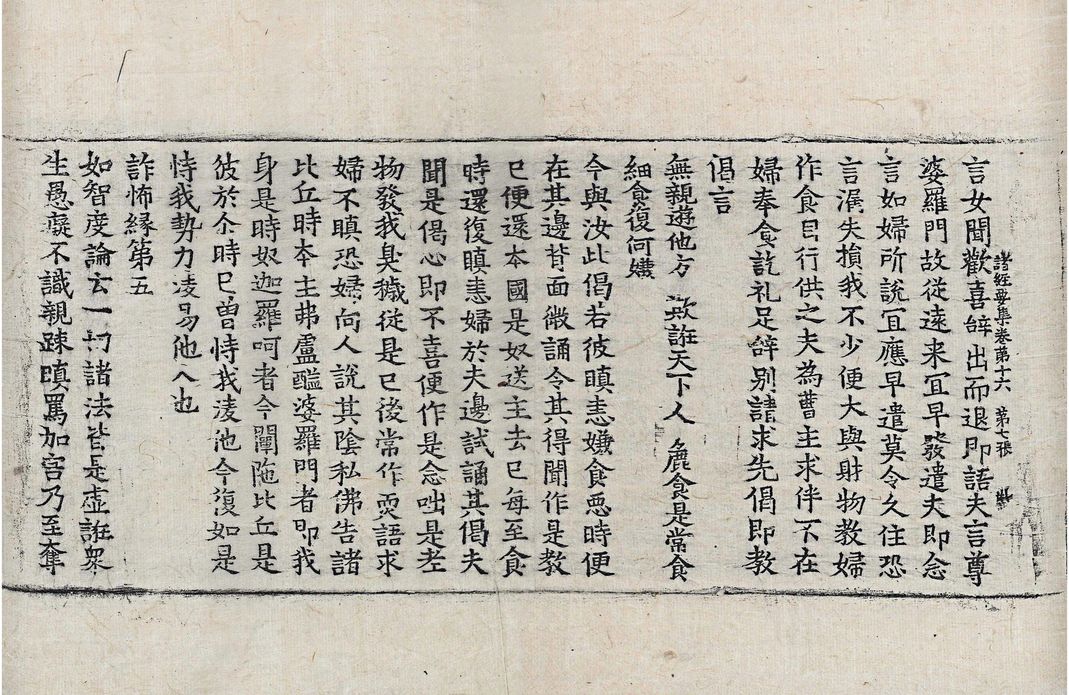 言女聞歡喜辝出而退即語夫言尊
諸經要集卷第十六 第七張
婆羅門故従遠来冝早發遣夫即念
言如婦所說冝應早遣莫令久住恐
言漏失損我不少便大與財物教婦
作食自行供之夫為曹主求伴下在
婦奉食訖礼足辝別請求先偈即教
偈言
無親遊他方 欺誑天下人 麁食是常食
細食復何嫌
今與汝此偈若彼瞋恚嫌食惡時便
在其邊背面微誦令其得聞作是教
已便還本國是奴送主去已每至食
時還復瞋恚婦於夫邊試誦其偈夫
聞是偈心即不喜便作是念咄是老
物發我臭穢従是已後常作耎語求
婦不瞋恐婦向人說其陰私佛告諸
比丘時本主弗盧醯婆羅門者即我
身是時奴迦羅呵者今闡陁比丘是
彼於尒時已曾恃我淩他今復如是
恃我勢力凌易他人也
詐怖緣第五
如智度論云一切諸法皆是虛誑衆
生愚癡不識親踈瞋罵加害乃至奪